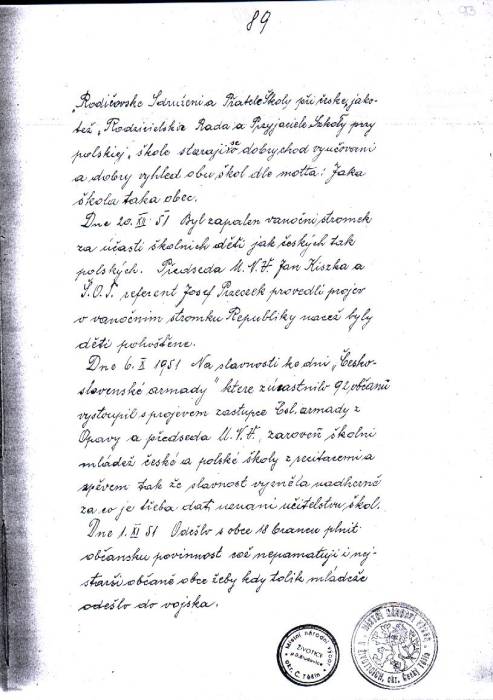 89
93
„Rodičovske Sdruženi a Přatele Školy při česke, jako-
též „Rodzicielska Rada a Przyjaciele Szkoły przy
polskiej„ škole starají se o dobry chod vyučovaní
a dobry vyhled obu škol dle motta: Jaka
škola taka obec.
Dne 20. XII. 51 Byl zapalen vanoční stromek
za účasti školních dětí jak českých tak
polských. Předseda M.N.V. Jan Kiszka a
Š.O.T. referent Josef Przeczek provedli projev
o vanočnim stromku Republiky nacež byly
děti pohoštěne.
Dne 6. X 1951 Na slavnosti ke dni „Česko-
slovenské armady" ktere zúčastnilo 92, občanů
vystoupil s projevem zastupce Čsl. armady z
Opavy a předseda M.N.V., zaroveň školni
mládež české a polské školy z recitacemi a
zpěvem tak že slavnost vyzněla nadherně
za co je třeba dat, uznani učitelstvu, škol.
Dne 1. XI 51 Odešlo s obce 18 brancu plnit
občansku povinnost což nepamatují i nej-
starši občané obce žeby kdy tolik mládeže
odešlo do vojska.
Místní národní výbor
ŽIVOTICE
okr. Č. Těšín
Místní národní výbor
v Životicích, okr. Český Těšín